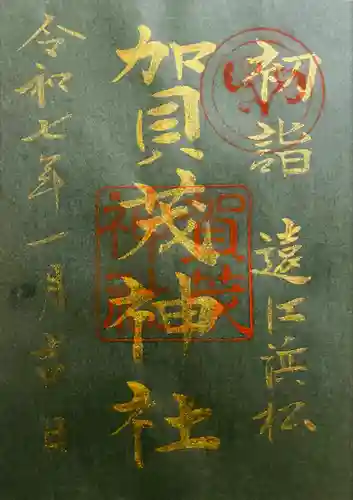 初詣 遠江浜松
加賀茂神社
賀茂
神社
令和七年一月吉日